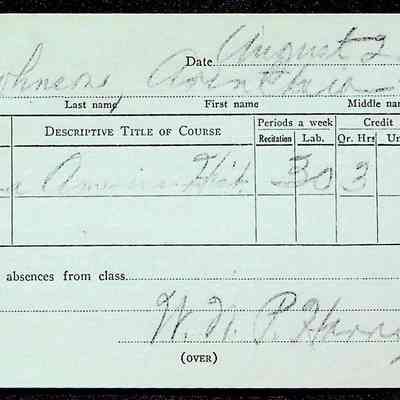 Date August 2
Johnson,
Last name First name Middle nam
DESCRIPTIVE TITLE OF COURSE Periods a week Credit
Recitation Lab. Qr. Hrs Un
American Hist. 3 0 3
absences from class
W. N. P. Harri
(OVER)